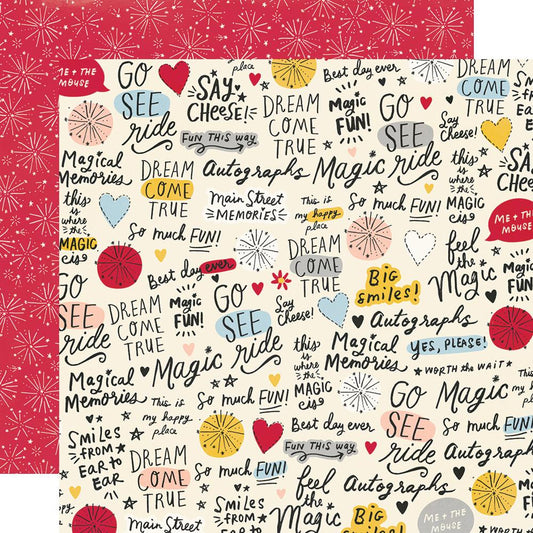 ME + THE
MOUSE
GO
SEE
ride
SAY
CHEESE!
place
Best day ever
DREAM
COME
TRUE
Magic
FUN!
GO
SEE
ride
Say
Cheese!
SAY
CHEESE!
FUN THIS WAY
Magical
Memories
DREAM
COME
TRUE
Autographs
Magic
this
is
where
the
MAGIC
is
Main Street
MEMORIES
This is
my happy
place
So much FUN!
this
is
where
the
MAGIC
is
ME + THE
MOUSE
So much FUN!
feel
the
Magic
Best day ever
DREAM
COME
TRUE
Big
smiles!
DREAM
COME
TRUE
Magic
FUN!
GO
SEE
ride
Say
Cheese!
Autographs
GO
SEE
ride
Magic
this
is
where
the
MAGIC
is
Magical
Memories
YES, PLEASE!
WORTH THE WAIT
Magical
Memories
This is
my happy
place
So much FUN!
GO
SEE
ride
Magic
This is
my happy
place
Best day ever
So much FUN!
SMILES
FROM
EAR TO
EAR
DREAM
COME
TRUE
FUN THIS WAY
Autographs
So much FUN!
feel
the
Magic
Autographs
SMILES
FROM
EAR TO
EAR
Main Street
Big
smiles!
ME + THE
MOUSE
DREAM
COME
TRUE